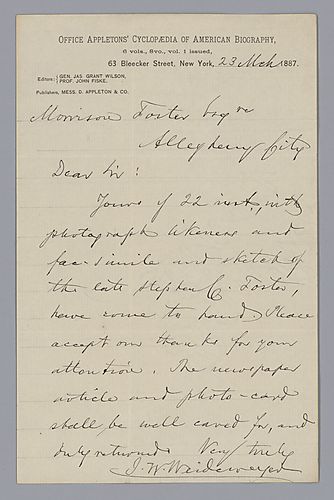 OFFICE APPLETONS' CYCLOPÆDIA OF AMERICAN BIOGRAPHY,
6 vols., 8vo., vol. 1 issued,
63 Bleecker Street, New York, 23 Mch 1887.
Editors: { GEN. JAS GRANT WILSON,
PROF. JOHN FISKE.
Publishers, MESS. D. APPLETON & CO.
Morrison Foster Esqre
Allegheny City
Dear Sir:
Yours of 22 inst., with
photograph likeness and
fac-simile and sketch of
the late Stephen C. Foster,
have come to hand. Please
accept our thanks for your
attention. The newspaper
article and photo-card
shall be well cared for, and
duly returned. Very truly
J. W. Weidemeyer